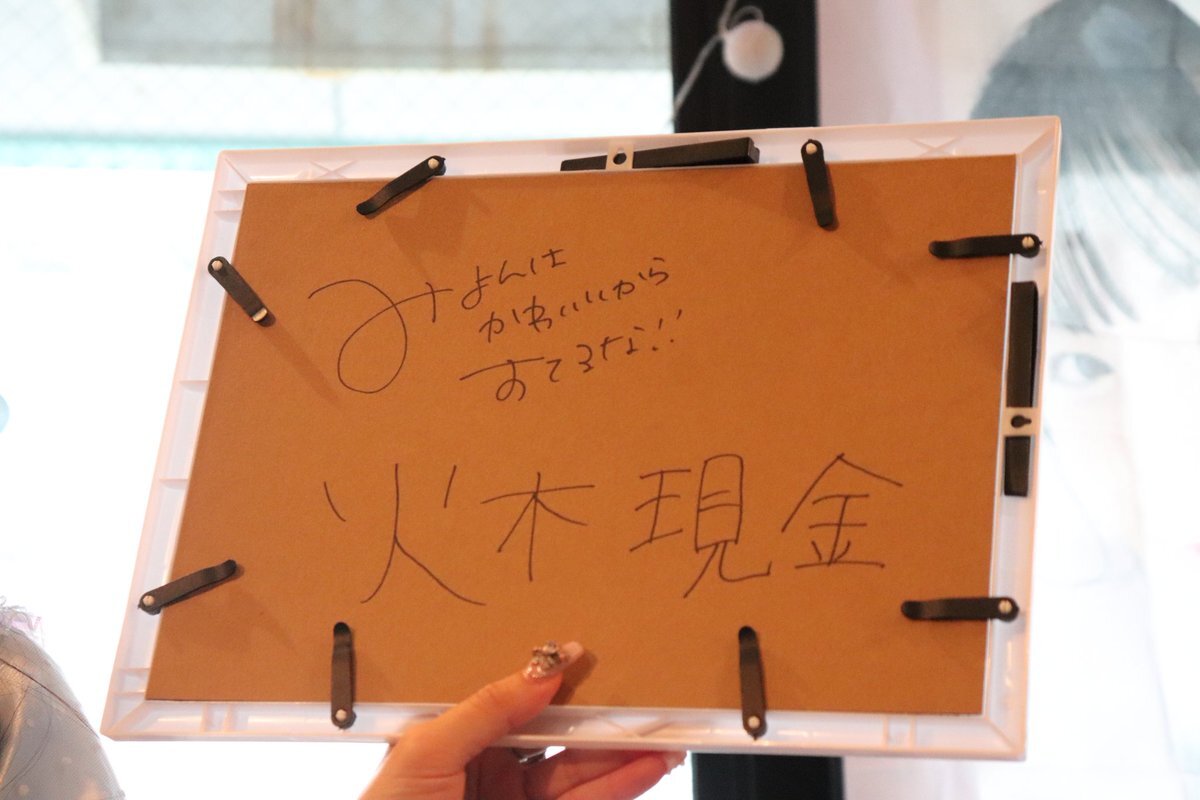 みよんは
かわいいから
すてるな!!
火木現金